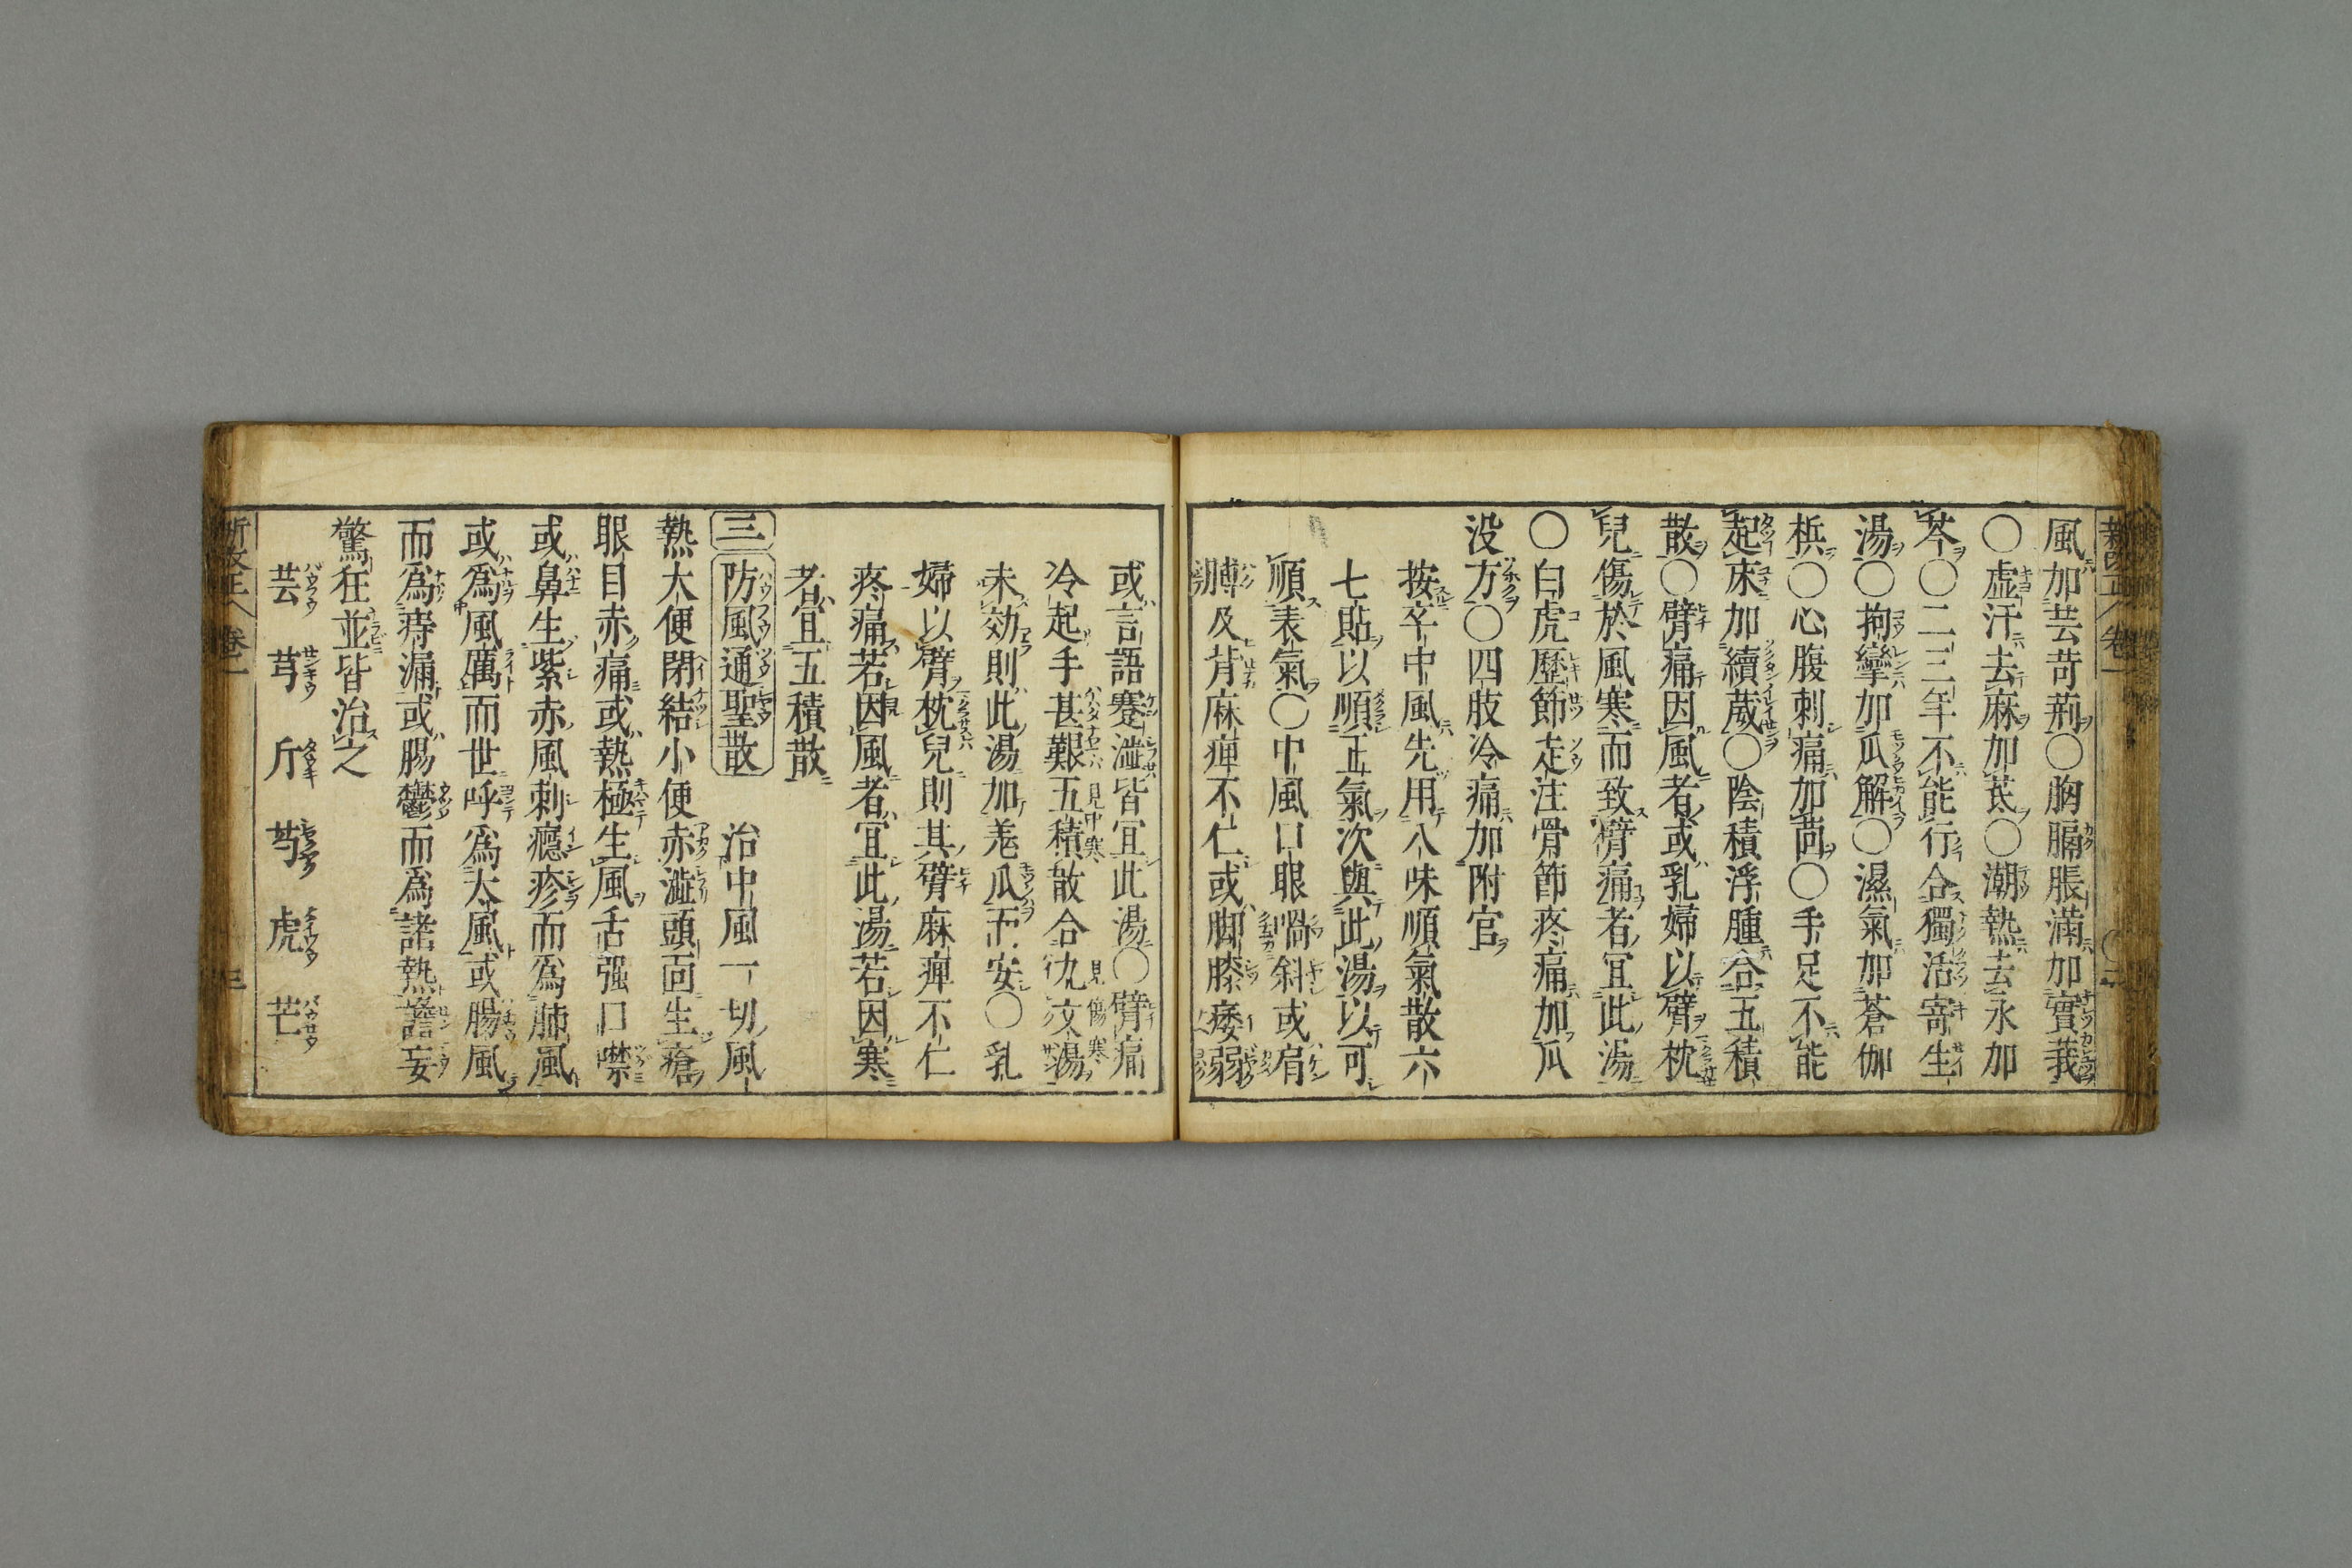 風加芸苛荊〇胸膈脹滿加實莪
〇虚汗去麻加芪〇潮熱去永加
芩〇二三年不能行合獨活寄生
湯〇拘攣加瓜解〇濕氣加蒼伽
梹〇心腹刺痛加茴〇手足不能
起床加續葳〇陰積浮腫合五積
散〇臂痛因風者或乳婦以臂枕
兒傷於風寒而致臂痛者宜此湯
〇白虎歷節走注骨節疼痛加瓜
没方〇四肢冷痛加附官
按卒中風先用八味順氣散六
七貼以順正氣次與此湯以可
順表氣〇中風口眼喎斜或肩
膊及背麻痺不仁或脚膝痿弱
或言語蹇澁皆宜此湯〇臂痛
冷起手甚艱五積散見中寒合湯見傷寒
未効則此湯加羗瓜安〇乳
婦以臂枕兒則其臂麻痺不仁
疼痛若因風者宜此湯若因寒
者宜五積散
三 防風通聖散 治中風一切風
熱大便閉結小便赤澁頭面生瘡
眼目赤痛或熱極生風舌强口噤
或鼻生紫赤風刺癮疹而為肺風
或為風厲而世呼為大風或腸風
而為痔漏或腸鬱而為諸熱譫妄
驚狂並皆治之
芸 芎 斤 芍 虎 芒